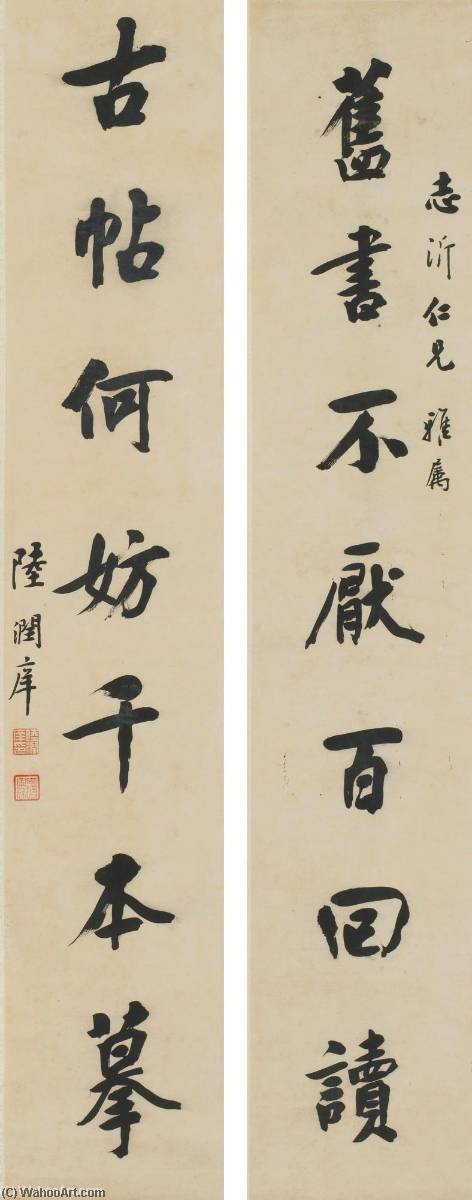 志沂仁兄雅属
舊書不厭百回讀
古帖何妨千本摹
陸潤庠
(C) WahooArt.com
WahooArt.com